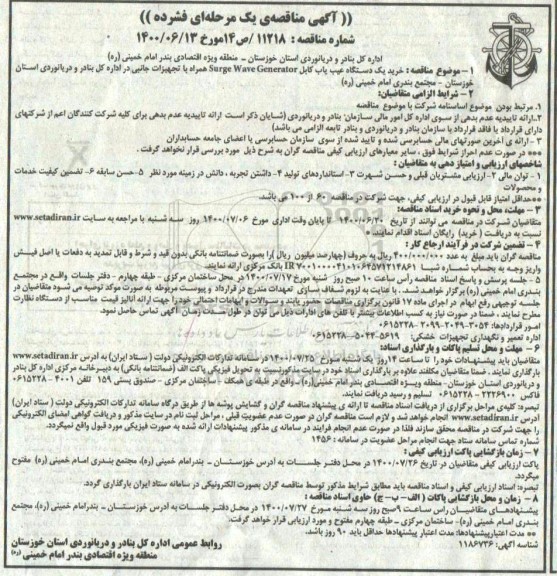 (( آگهی مناقصه‌ی یک مرحله‌ای فشرده ))
شماره مناقصه : ۱۱۲۱۸ /ص۱۴مورخ ۱۴۰۰/۰۶/۱۳
اداره کل بنادر و دریانوردی استان خوزستان - منطقه ویژه اقتصادی بندر امام خمینی (ره)
۱ - موضوع مناقصه : خرید یک دستگاه عیب یاب کابل Surge Wave Generator همراه با تجهیزات جانبی در اداره کل بنادر و دریانوردی استان
خوزستان - مجتمع بندری امام خمینی (ره)
۲ - شرایط الزامی متقاضیان:
۱. مرتبط بودن موضوع اساسنامه شرکت با موضوع مناقصه
۲.ارائه تاییدیه عدم بدهی از سوی اداره کل امور مالی سازمان بنادر و دریانوردی (شایان ذکر است ارائه تاییدیه عدم بدهی برای کلیه شرکت کنندگان اعم از شرکتهای
دارای قرارداد یا فاقد قرارداد با سازمان بنادر و دریانوردی و بنادر تابعه الزامی می باشد)
۳ - ارائه ی آخرین صورتهای مالی حسابرسی شده و تایید شده از سوی سازمان حسابرسی یا اعضای جامعه حسابداران
** در صورت عدم احراز شرایط فوق ، سایر معیارهای ارزیابی کیفی مناقصه گران به شرح ذیل مورد بررسی قرار نخواهد گرفت .
شاخصهای ارزیابی و امتیاز دهی به متقاضیان :
۱ - توان مالی ۲- ارزیابی مشتریان قبلی و حسن شهرت ۳-استانداردهای تولید ۴- داشتن تجربه ، دانش در زمینه مورد نظر ۵-حسن سابقه ۶- تضمین کیفیت خدمات
و محصولات
**حداقل امتیاز قابل قبول در ارزیابی کیفی، جهت شرکت در مناقصه ۶۰ از ۱۰۰ می باشد.
۳ - مهلت، محل و نحوه خرید اسناد مناقصه:
متقاضیان شرکت در مناقصه می توانند از تاریخ ۱۴۰۰/۰۶/۲۰ تا پایان وقت اداری مورخ ۱۴۰۰/۰۷/۰۶ روز سه شنبه با مراجعه به سایت www.setadiran.ir
نسبت به دریافت ( خرید) رایگان اسناد اقدام نمایند .
۴ - تضمین شرکت در فرآیند ارجاع کار :
مناقصه گران باید مبلغ به عدد ۴۰۰/۰۰۰/۰۰۰ ریال به حروف (چهارصد میلیون ریال )را بصورت ضمانتنامه بانکی بدون قید و شرط و قابل تمدید به دفعات یا اصل فیش
۵ - جلسه پرسش و پاسخ اسناد مناقصه راس ساعت ۱۰ صبح روز شنبه مورخ ۱۴۰۰/۰۷/۱۷ در محل ساختمان مرکزی - طبقه چهارم - دفتر جلسات واقع در مجتمع
بندری امام خمینی (ره) برگزار خواهدشد. با عنایت به لزوم شفاف سازی تعهدات مندرج در قرارداد و پیوست مربوطه به صورت موکد توصیه می شود متقاضیان در
جلسه توجیهی رفع ابهام در اجرای ماده ۱۷ قانون برگزاری مناقصات حضور یابند و سوالات و ابهامات احتمالی خود را جهت ارائه آنالیز قیمت مناسب از دستگاه نظارت
مطرح نمایند . ضمنا در صورت نیاز به کسب اطلاعات بیشتر با تلفن های ادارات ذیل می توان در طول مدت زمان آگهی تماس حاصل نمود.
امور قراردادها: ۳۰۵۴-۲۰۴۹-۲۰۹۹-۰۶۱۵۲۲۸
اداره تعمیر و نگهداری تجهیزات خشکی: ۵۶۱۹-۵۰۲۴-۰۶۱۵۲۲۸
۶ - مهلت و محل تسلیم پاکات و بارگذاری اسناد:
متقاضیان باید پیشنهادات خود را تا ساعت ۱۴ روز یک شنبه مورخ ۱۴۰۰/۰۷/۲۵ در سامانه تدارکات الکترونیکی دولت ( ستاد ایران) به آدرس www.setadiran.ir
بارگذاری نمایند . ضمنا متقاضیان مکلفند علاوه بر بارگذاری اسناد خود در سایت مذکورنسبت به تحویل فیزیکی پاکت الف (ضمانتنامه بانکی) به دبیرخانه مرکزی اداره کل بنادر
و دریانوردی استان خوزستان- منطقه ویژه اقتصادی بندر امام خمینی(ره)- واقع در طبقه ی همکف - ساختمان مرکزی - صندوق پستی ۱۵۹ تلفن ۴۰۰۱ - ۰۶۱۵۲۲۸
فاکس ۲۲۲۶۹۰۰ - ۰۶۱۵۲۲۸ تسلیم و رسید دریافت نمایند.
تبصره: کلیه‌ی مراحل برگزاری از دریافت اسناد مناقصه تا ارائه ی پیشنهاد مناقصه گران و گشایش پوشه ها از طریق درگاه سامانه تدارکات الکترونیکی دولت ( ستاد ایران)
آدرس www.setadiran.ir انجام خواهد شد و لازم است مناقصه گران در صورت عدم عضویت قبلی ، مراحل ثبت نام در سایت مذکور و دریافت گواهی امضای الکترونیکی
را جهت شرکت در مناقصه محقق سازند فلذا در صورت عدم انجام فرایند در سامانه ی مذکور پیشنهادات ارائه شده به صورت فیزیکی مورد قبول واقع نمیگردد.
شماره تماس سامانه ستاد جهت انجام مراحل عضویت در سامانه : ۱۴۵۶
۷ - زمان بازگشایی پاکات ارزیابی کیفی :
پاکت ارزیابی کیفی متقاضیان در تاریخ ۱۴۰۰/۰۷/۲۶ در محل دفتر جلسات به آدرس خوزستان - بندرامام خمینی (ره)، مجتمع بندری امام خمینی (ره) مفتوح
میگردد.
تبصره: اسناد ارزیابی کیفی و اسناد مناقصه باید مطابق شرایط مذکور توسط مناقصه گران بصورت الکترونیکی در سامانه ستاد ایران بارگذاری گردد.
۸ - زمان و محل بازگشایی پاکات ( الف – ب – ج) حاوی اسناد مناقصه :
پیشنهادهای متقاضیان راس ساعت ۹صبح روز سه شنبه مورخ ۱۴۰۰/۰۷/۲۷ در محل دفتر جلسات به آدرس خوزستان - بندرامام خمینی (ره)، مجتمع
بندری امام خمینی (ره)- ساختمان مرکزی - طبقه چهارم مفتوح و مورد ارزیابی قرار خواهد گرفت.
** مدت اعتبارپیشنهادها: مدت اعتبار پیشنهادها حداقل باید ۹۰ روز باشد.
شناسه آگهی: ۱۱۸۶۷۳۶
روابط عمومی اداره کل بنادر و دریانوردی استان خوزستان
منطقه ویژه اقتصادی بندر امام خمینی (ره)